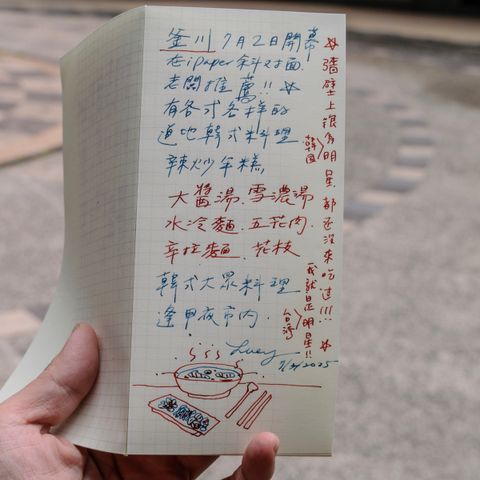 釜川 7月2日開幕
在ipaper斜对面.
老闆推薦!! ☆
有各式各样的
道地韓式料理
辣炒年糕
大醬湯. 雪濃湯
水冷麵. 五花肉.
辛拉麵. 花枝
韓式大眾料理
逢甲夜市內.
Lucy
2025
☆ 牆壁上很多明星都还没來吃过!!! ☆
韓国
我就是明星!!
台湾